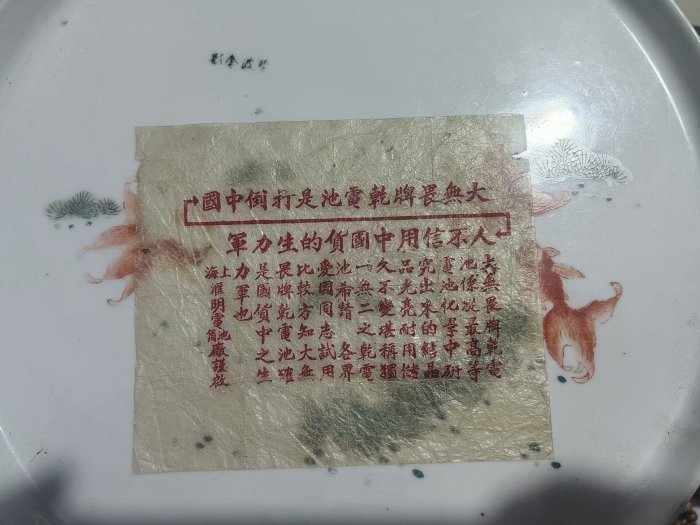 大無畏牌乾電池是打倒中國
人不信用中國貨的生力軍
大無畏牌乾電
池係從最高等
電池化學中研
究出來的結晶
品光亮耐用儲
久不變堪稱獨
一無二之乾電
池希請 各界
愛國同志試用
比較方知大無
畏牌乾電池確
是國貨中之生
力軍也
上海滙明電池筒廠謹啟